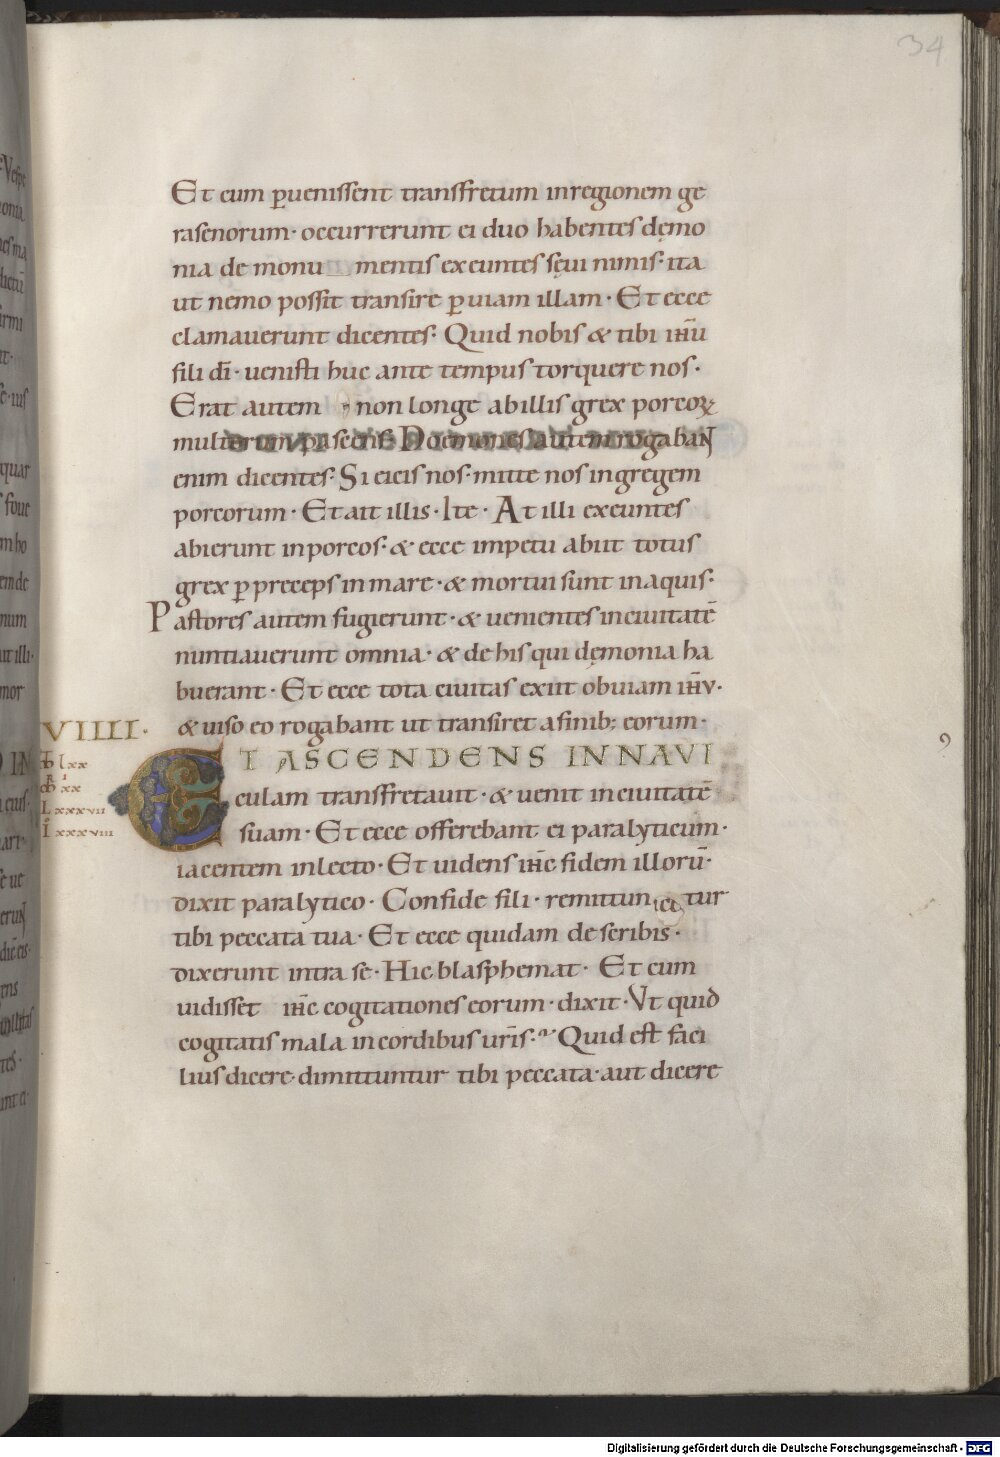 34
Et cum ꝑuenissent transfretum inregionem ge
rasenorum· occurrerunt ei duo habentes dęmo
nia de monu mentis exeuntes sęui nimis· ita
ut nemo possit transire ꝑ uiam illam· Et ecce
clamauerunt dicentes· Quid nobis & tibi ihū
fili dī· uenisti huc ante tempus torquere nos·
Erat autem non longe abillis grex porcoꝝ
multorum pascens· Doemones autem rogaban
enim dicentes· Si eicis nos· mitte nos ingregem
porcorum· Et ait illis· Ite· At illi exeuntes
abierunt inporcos· & ecce impetu abiit totus
grex ꝑ preceps in mare· & mortui sunt inaquis·
Pastores autem fugierunt· & uenientes inciuitatē
nuntiauerunt omnia· & de his qui dęmonia ha
buerant· Et ecce tota ciuitas exiit obuiam ihv·
& uiso eo rogabant ut transiret afinib; eorum·
VIIII·
ET ASCENDENS INNAVI
culam transfretauit· & uenit inciuitatē
suam· Et ecce offerebant ei paralyticum·
iacentem inlecto· Et uidens ihc fidem illorū·
dixit paralytico· Confide fili· remittun tur
tibi peccata tua· Et ecce quidam de scribis·
dixerunt intra se· Hic blasphemat· Et cum
uidisset ihc cogitationes eorum· dixit· Vt quid
cogitatis mala incordibus uris· Quid est faci
lius dicere· dimittuntur tibi peccata· aut dicere
lxx
xx
L xxxvii
I xxxviii
Digitalisierung gefördert durch die Deutsche Forschungsgemeinschaft - DFG